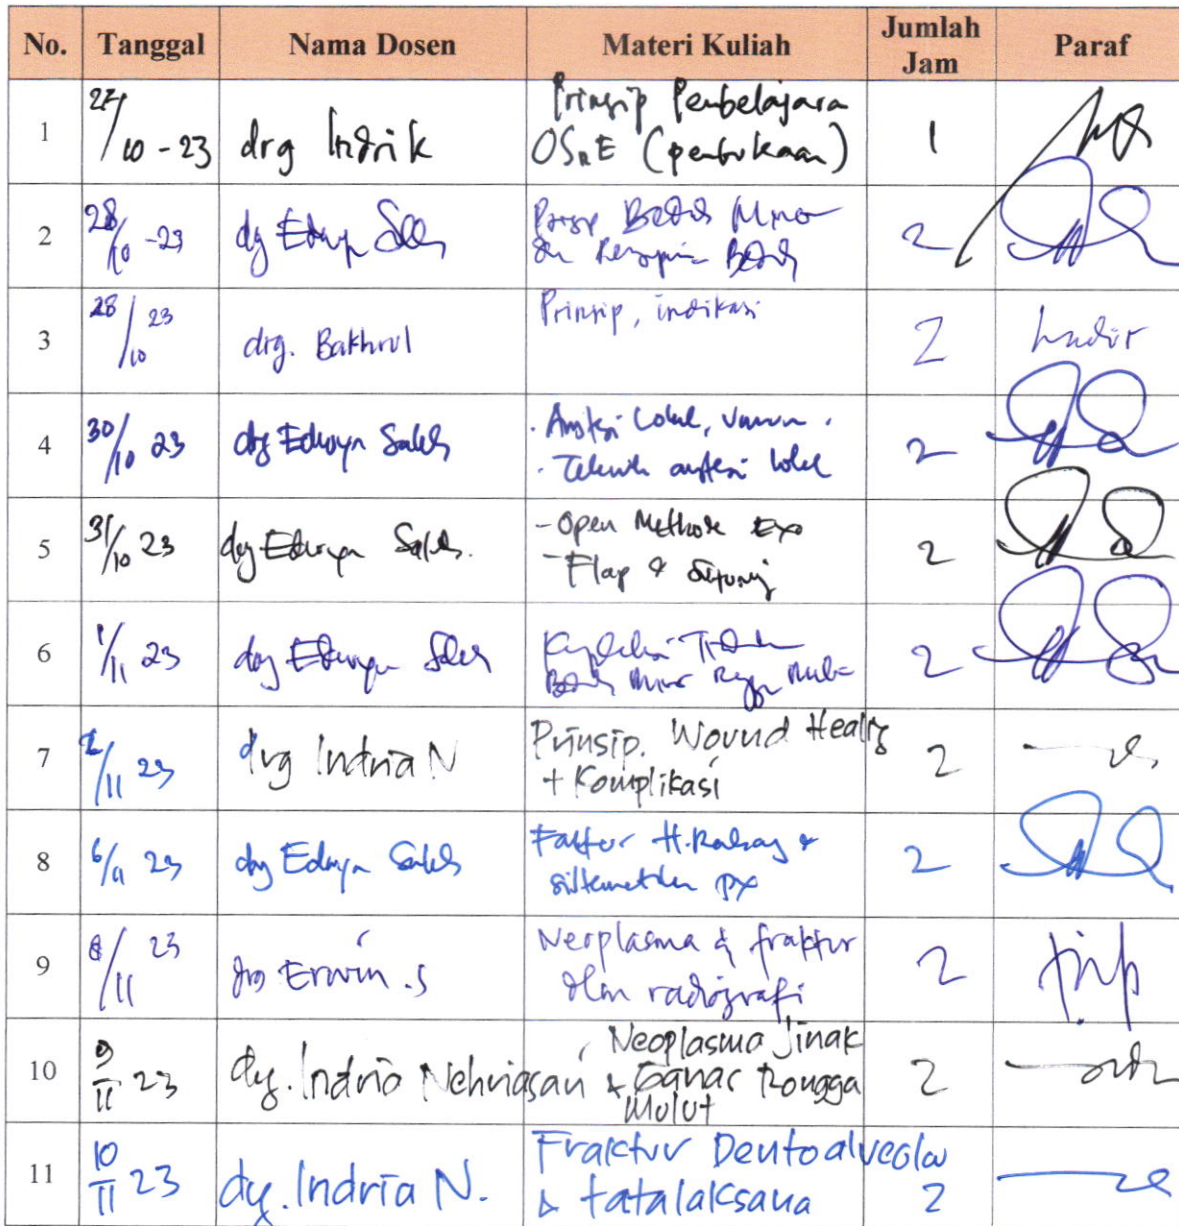 No. Tanggal Nama Dosen Materi Kuliah Jumlah Jam Paraf
1 27/10-23 drg Indrik Prinsip Pembelajara
OSnE (pembukaan) 1
2 28/10-23 drg Edwyn Saleh Minor
2
3 28/10 23 drg. Bakhrul Prinsip, indikasi 2 hadir
4 30/10 23 drg Edwyn Saleh · Anstesi Lokal,
· Teknik anstesi lokal 2
5 31/10 23 drg Edwyn Saleh. - Open Methode Exo
- Flap & 2
6 1/11 23 drg Edwyn Saleh
2
7 2/11 23 drg Indria N Prinsip. Wound Healing
+ Komplikasi 2
8 6/11 23 drg Edwyn Saleh H. Rahang &
px 2
9 8/11 23 drg Erwin .S Neoplasma & fraktur
dlm radiografi 2
10 9/11 23 drg. Indria Nehriasari Neoplasma Jinak
& Ganas Rongga
Mulut 2
11 10/11 23 drg. Indria N. Fraktur Dentoalveolar
& tatalaksana 2